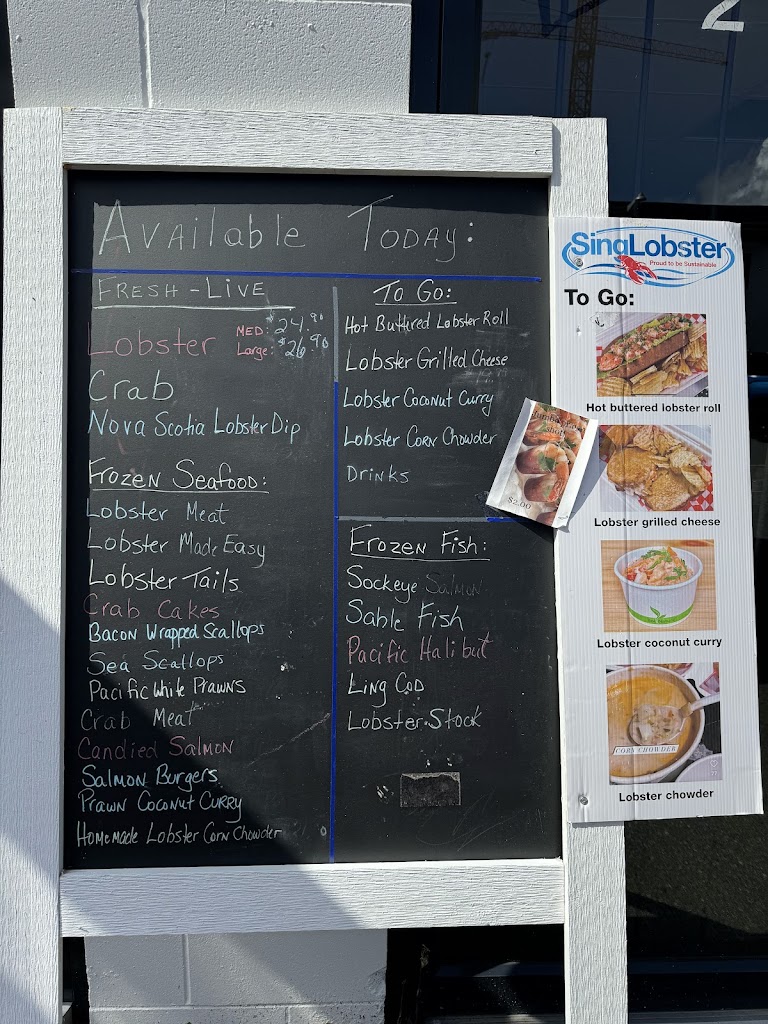 2
Available Today:
Fresh - Live
Lobster MED: $24.90
Large: $26.90
Crab
Nova Scotia Lobster Dip
Frozen Seafood:
Lobster Meat
Lobster Made Easy
Lobster Tails
Crab Cakes
Bacon Wrapped Scallops
Sea Scallops
Pacific White Prawns
Crab Meat
Candied Salmon
Salmon Burgers
Prawn Coconut Curry
Homemade Lobster Corn Chowder
To Go:
Hot Buttired Lobster Roll
Lobster Grilled Cheese
Lobster Coconut Curry
Lobster Corn Chowder
Drinks
Frozen Fish:
Sockeye Salmon
Sable Fish
Pacific Halibut
Ling Cod
Lobster Stock
$2.00
SingLobster
Proud to be Sustainable
To Go:
Hot buttered lobster roll
Lobster grilled cheese
Lobster coconut curry
CORN CHOWDER
Lobster chowder